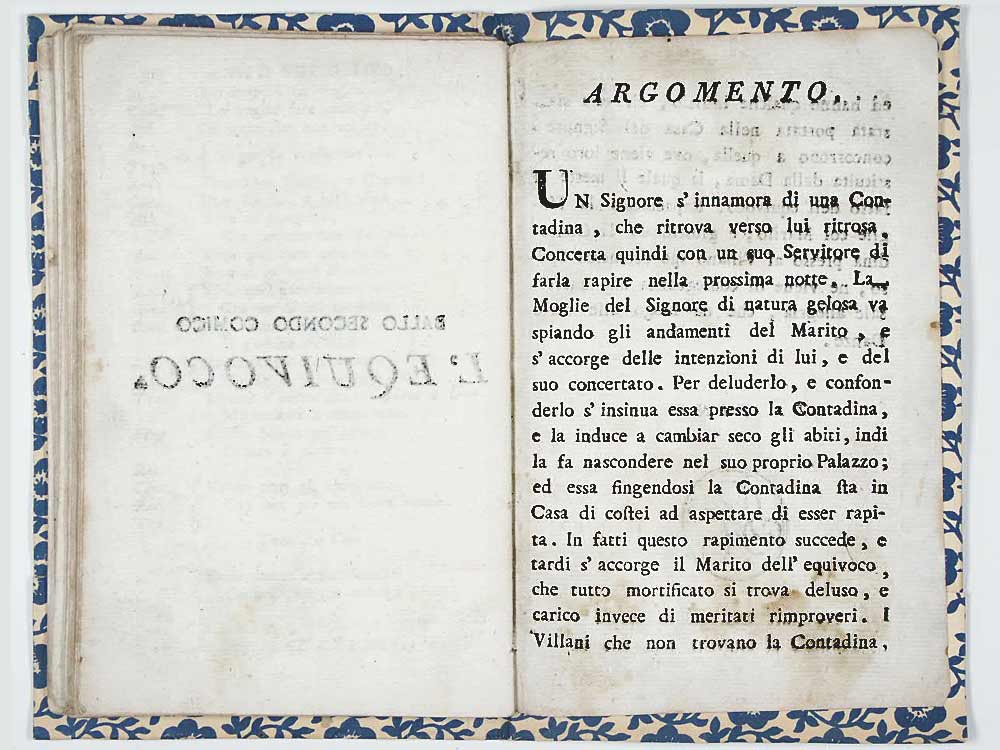 BALLO SECONDO COMICO
L'EQUIVOCO.
ARGOMENTO.
UN Signore s'innamora di una Con-
tadina, che ritrova verso lui ritrosa.
Concerta quindi con un suo Servitore di
farla rapire nella prossima notte. La
Moglie del Signore di natura gelosa va
spiando gli andamenti del Marito, e
s'accorge delle intenzioni di lui, e del
suo concertato. Per deluderlo, e confon-
derlo s'insinua essa presso la Contadina,
e la induce a cambiar seco gli abiti, indi
la fa nascondere nel suo proprio Palazzo;
ed essa fingendosi la Contadina sta in
Casa di costei ad aspettare di esser rapi-
ta. In fatti questo rapimento succede, e
tardi s'accorge il Marito dell'equivoco,
che tutto mortificato si trova deluso, e
carico invece di meritati rimproveri. I
Villani che non trovano la Contadina,